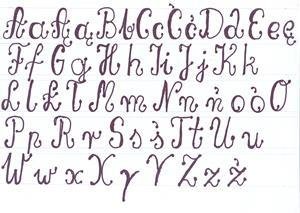 A a Ą ą B b C c Ć ć D d E e ę
F f G g H h I i J j K k
L l Ł ł M m N n ń o ó O
P p R r S s ś T t U u
W w x X y Y Z z ź